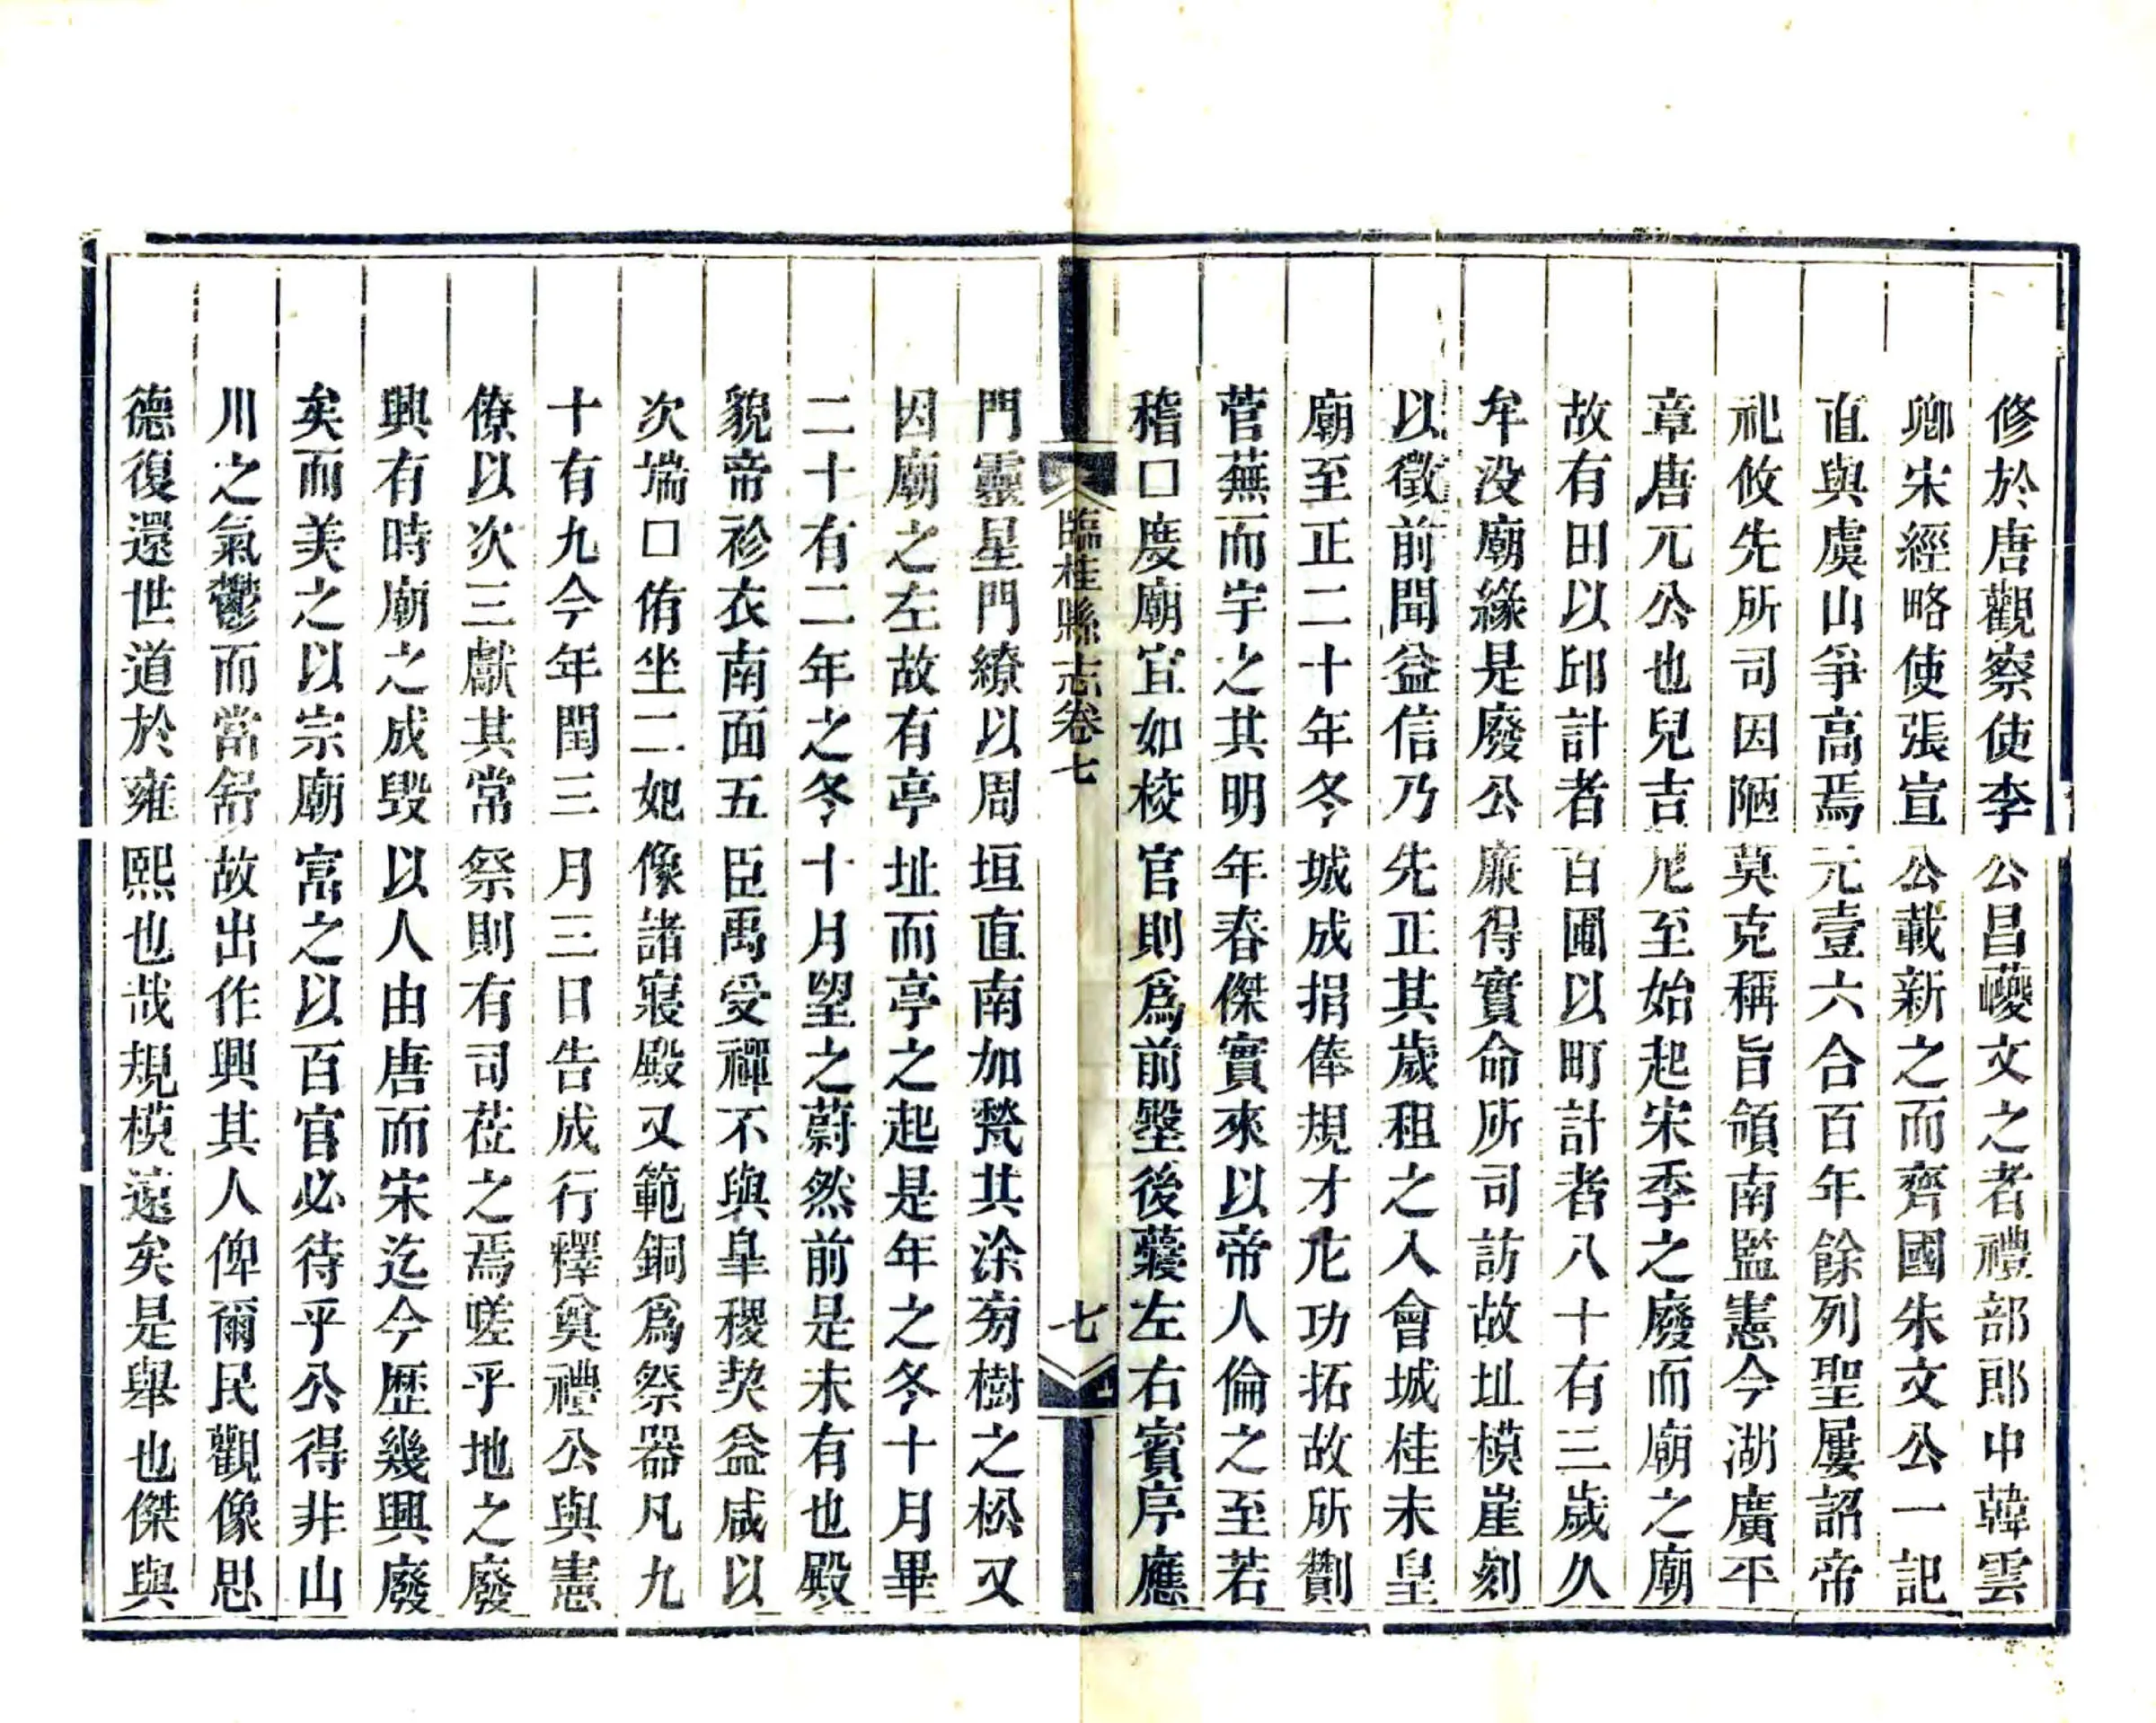 修於唐觀察使李公昌巙文之者禮部郎中韓雲
卿宋經略使張宣公載新之而齊國朱文公一記
直與虞山爭高焉元壹六合百年餘列聖屢詔帝
祀攸先所司因陋莫克稱旨領南監憲今湖廣平
章唐兀公也兒吉尼至始起宋季之廢而廟之廟
故有田以邱計者百圃以町計者八十有三歲久
牟没廟緣是廢公廉得實命所司訪故址模崖刻
以徵前聞益信乃先正其歲租之入會城桂未皇
廟至正二十年冬城成捐俸規才尼功拓故所劗
菅蕪而宇之其明年春傑實來以帝人倫之至若
稽口度廟宜如校官則爲前墾後蓘左右賓序應
臨桂縣志卷七
七
門靈星門繚以周垣直南加甃其涂旁樹之松又
因廟之左故有亭址而亭之起是年之冬十月畢
二十有二年之冬十月望之蔚然前是未有也殿
貌帝袗衣南面五臣禹受禪不與皐稷契益咸以
次端口侑坐二妃像諸寢殿又範銅爲祭器凡九
十有九今年閏三月三日告成行釋奠禮公與憲
僚以次三獻其常祭則有司莅之焉嗟乎地之廢
興有時廟之成毁以人由唐而宋迄今歷幾興廢
矣而美之以宗廟富之以百官必待乎公得非山
川之氣鬱而當舒故出作興其人俾爾民觀像思
德復還世道於雍熙也哉規模遠矣是舉也傑與